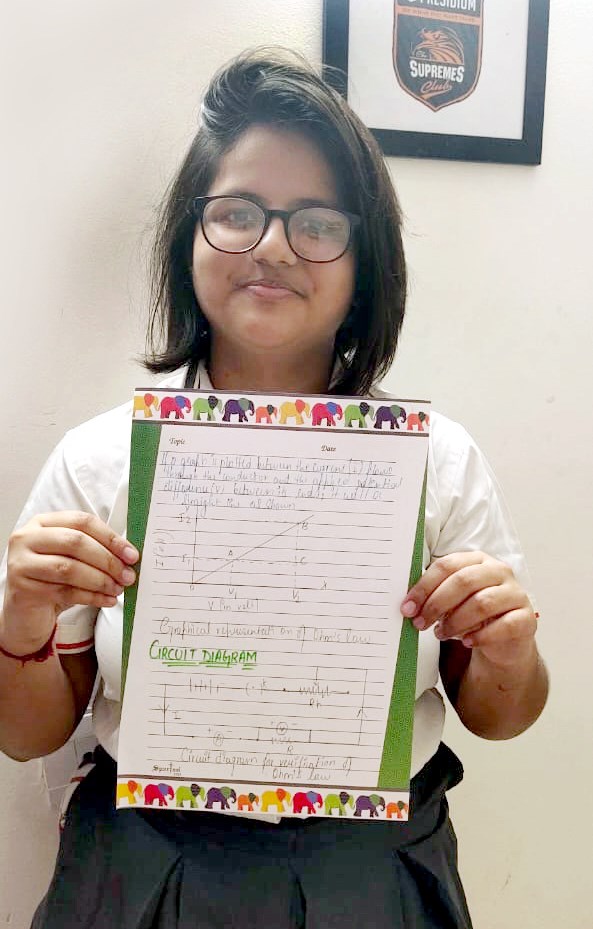 PRESIDIUM
The
SUPREMES
Club
Topic Date
If a graph is plotted between the current (I) flows
through the conductor and the applied potential
difference (V) between its ends, it will a
straight line as shown
I2 B
I1 A C
0 V1 V2
V (in volt)
Graphical representation of Ohm's law
CIRCUIT DIAGRAM
Rh
I
V
R
Circuit diagram for verification of
Ohm's law